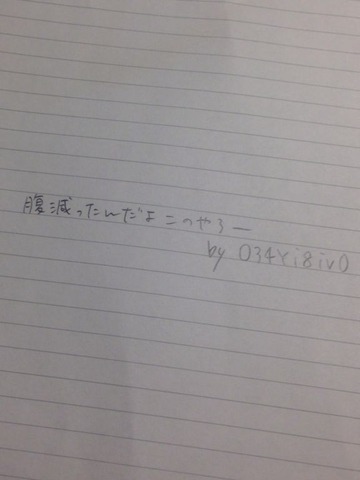 腹減ったんだよこのやろー
by 034Yi8iv0